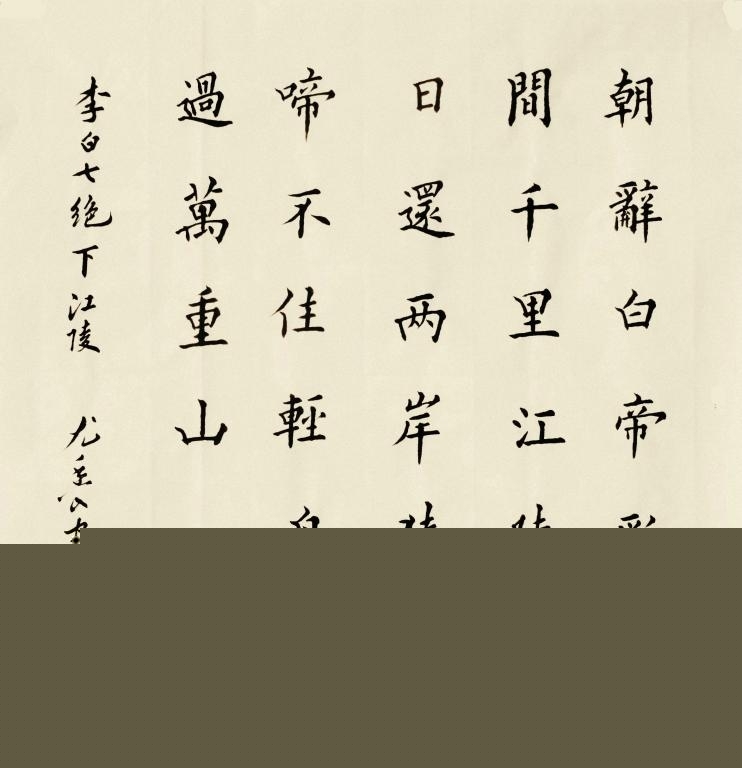 朝辭白帝
間千里江
日還两岸
啼不住輕
過萬重山
李白七绝下江陵